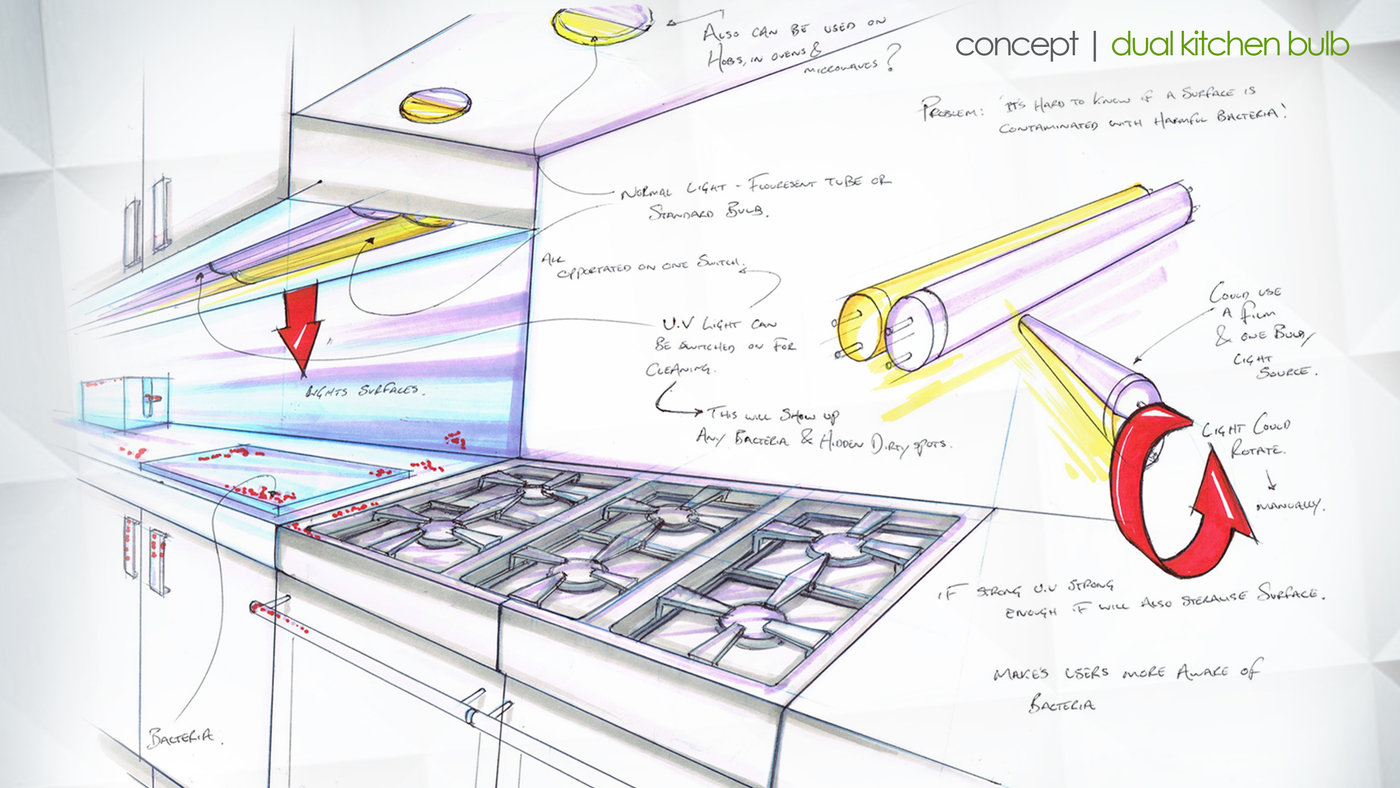 concept | dual kitchen bulb
Also can be used on
Hobs, in ovens &
microwaves?
Problem: 'It's hard to know if a surface is
contaminated with harmful bacteria'.
Normal light - Flouresent tube or
standard bulb.
All
opportated on one switch.
U.V light can
be switched on for
cleaning.
This will show up
any bacteria & hidden dirty spots.
Lights surfaces.
Could use
a film
& one bulb/
light
source.
Light could
rotate.
manually.
If strong U.V strong
enough it will also steralise surface.
Makes users more aware of
bacteria
Bacteria.